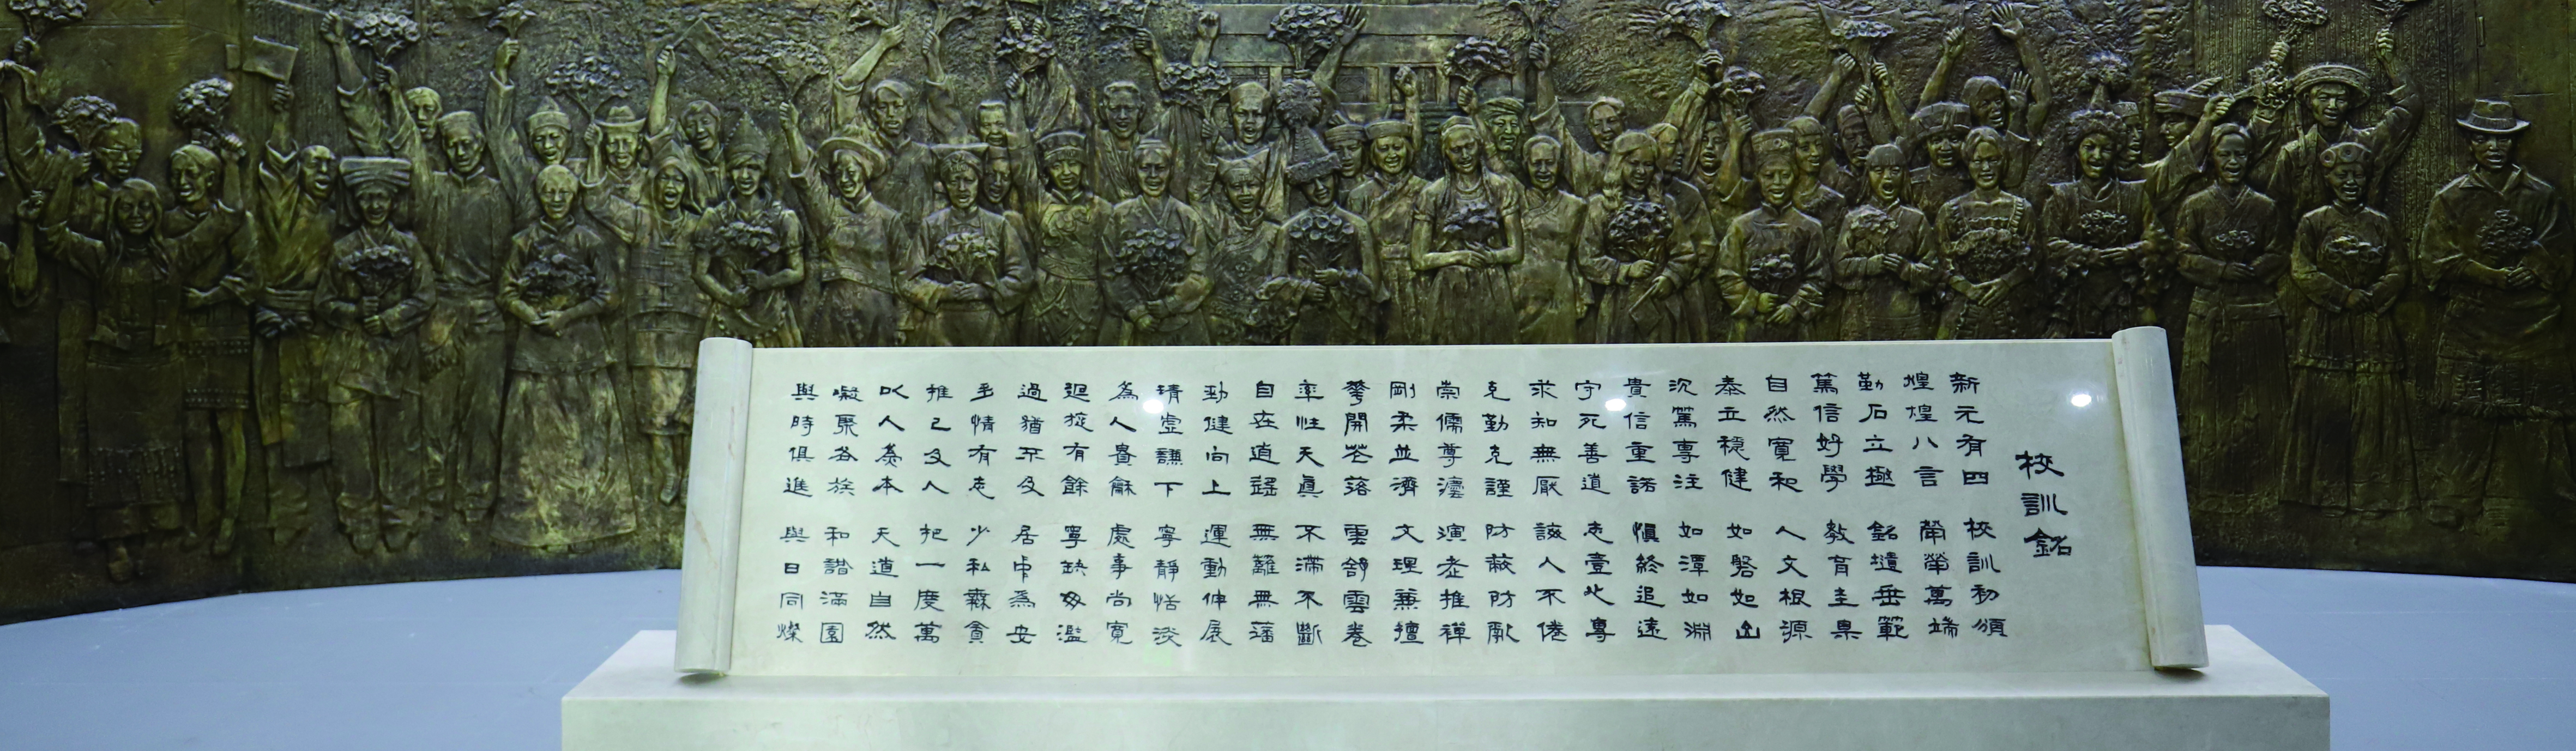 校訓銘
新元有四 校訓初頒
煌煌八言 犖萬端
勒石立極 銘岳範
篤信好學 教育圭臬
自然寬和 人文根源
泰立穩健 如磐如山
沉篤專注 如潭如淵
貴信重諾 慎終追遠
守死善道 志壹此專
求知無厭 誨人不倦
克勤克謹 防蔽防
崇儒尊灋 演老推禪
剛柔並濟 文理兼擅
華開花落 雲舒雲卷
率性天真 不滯不斷
自在逍遙 無籬無藩
勁健向上 運動伸展
清虛謙下 寧靜恬淡
為人貴龢 處事尚寬
迴旋有餘 寧缺毋濫
過猶不及 居中為安
情有志 少私寡貪
推己及人 把一度萬
以人為本 天道自然
凝聚各族 和諧滿園
與時俱進 與日同燦